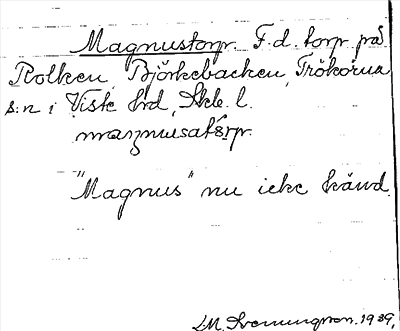 Magnustorp. F.d. torp på
Rolken, Björkebacken, Trökörna
s:n i Viste hrd, Skbl. l.
"Magnus" nu icke känd.
M. Svenungsson. 1939.